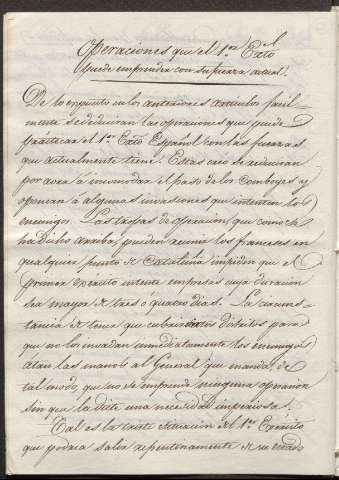 Operaciones que el 1.er Exto
puede emprender con su fuerza actual.
De lo expuesto en los anteriores articulos facil-
mente se deduciran las operaciones que puede
practicar el 1.er Exto Español con las fuerzas
que actualmente tiene. Estas casi se reduciran
por aora á incomodar el paso de los comboyes y
oponerse á algunas invasiones que intenten los
enemigos. Las tropas de operacion, que como se
ha dicho arriba, pueden reunir los franceses en
qualquier punto de Cataluña impiden que el
primer exercito intente empresas cuya duracion
sea mayor de tres o quatro dias. La circuns-
tancia de tener que cubrir distritos para
que no los invadan inmediatamente los enemigos
atan las manos al General que manda, de
tal modo, que no se emprende ninguna operacion
sin que la dicte una necesidad imperiosa.
Tal es la triste situacion del 1.er Exercito
que podria salir repentinamente de su estado